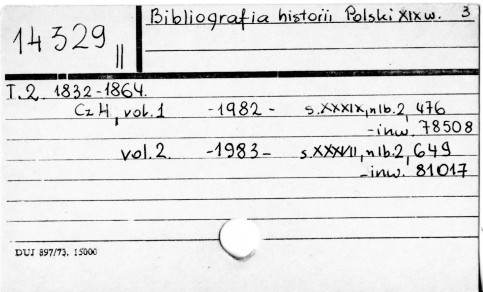 14329 ||
Bibliografia historii Polski XIX w. 3
T.2. 1832-1864.
Cz 4, vol. 1 -1982- s. XXXIX, nlb. 2, 476
-inw. 78508
vol. 2. -1983- s. XXXVII, nlb. 2, 649
-inw. 81017
DUJ 897/73. 15000